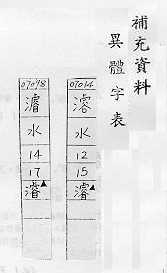 補充資料
異體字表
07014
濬
水
12
15
濬▲
07018
水
14
17
濬▲